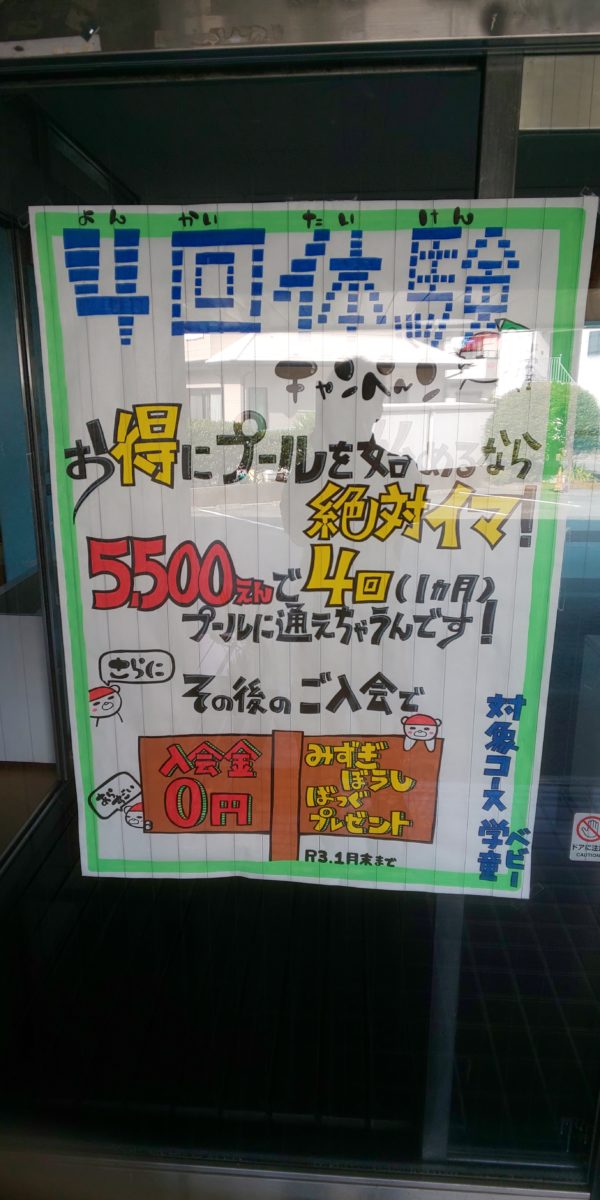 よん かい たい けん
4回体験
キャンペーン
お得にプールを始めるなら
絶対イマ!
5,500えんで4回(1ヵ月)
プールに通えちゃうんです!
さらに
その後のご入会で
入会金
0円
みずぎ
ぼうし
ばっぐ
プレゼント
R3.1月末まで
対象コース
ベビー
学童
ドアに注
CAUTION